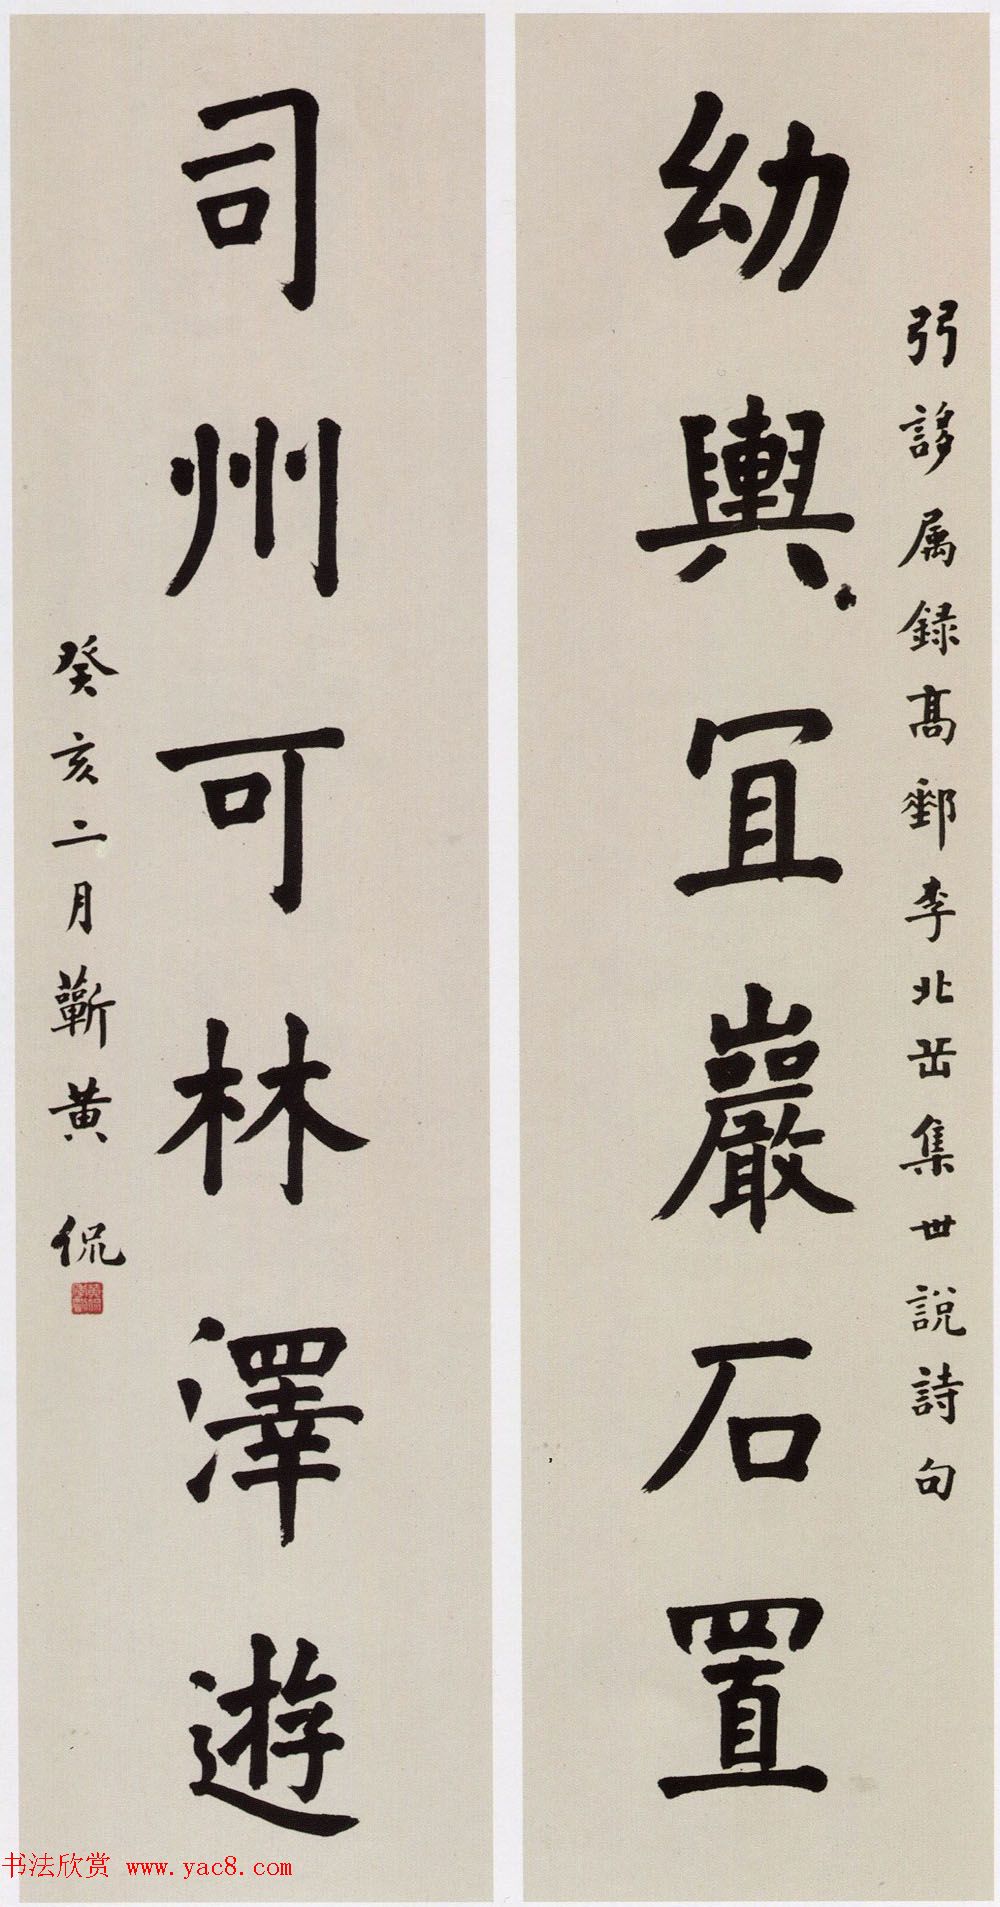 弜謻属録高郵李北岳集世說詩句
幼輿冝巖石置
司州可林澤遊
癸亥二月蘄黄侃
书法欣赏 www.yac8.com